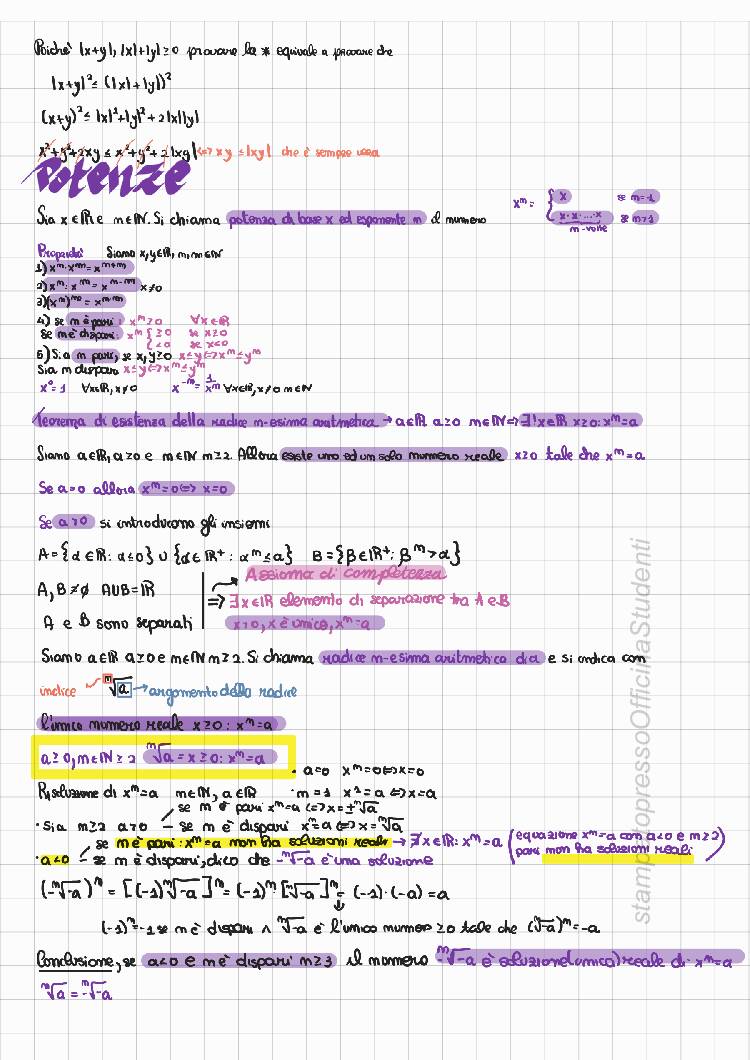 Poiché |x+y|, |x|+|y| ≥ 0 provare la * equivale a provare che
|x+y|² ≤ (|x|+|y|)²
(x+y)² ≤ |x|²+|y|²+2|x||y|
x²+y²+2xy ≤ x²+y²+2|xy| <=> xy ≤ |xy| che è sempre vera
Potenze
Sia x∈ℝ e n∈ℕ. Si chiama potenza di base x ed esponente n il numero
xⁿ = { x se n=1
x·x·...·x se n>1
n-volte
Proprietà Siano x,y∈ℝ, n,m∈ℕ
1) xⁿ·xᵐ = xⁿ⁺ᵐ
2) xⁿ : xᵐ = xⁿ⁻ᵐ x≠0
3) (xⁿ)ᵐ = xⁿ·ᵐ
4) se n è pari : xⁿ ≥ 0 ∀x∈ℝ
se n è dispari: xⁿ { ≥0 se x≥0
<0 se x<0
5) Sia n pari, se x,y≥0 x≤y <=> xⁿ ≤ yⁿ
Sia n dispari x≤y <=> xⁿ ≤ yⁿ
x⁰=1 ∀x∈ℝ, x≠0 x⁻ⁿ = 1/xⁿ ∀x∈ℝ, x≠0 n∈ℕ
Teorema di esistenza della radice n-esima aritmetica → a∈ℝ a≥0 n∈ℕ => ∃!x∈ℝ x≥0: xⁿ=a
Siano a∈ℝ, a≥0 e n∈ℕ n≥2. Allora esiste uno ed un solo numero reale x≥0 tale che xⁿ=a
Se a=0 allora xⁿ=0 <=> x=0
Se a>0 si introducono gli insiemi
A={α∈ℝ: α≤0} ∪ {α∈ℝ⁺: αⁿ≤a} B={β∈ℝ⁺: βⁿ>a}
Assioma di completezza
A,B≠∅ A∪B=ℝ
=> ∃x∈ℝ elemento di separazione tra A e B
A e B sono separati x>0, x è unico, xⁿ=a
Siano a∈ℝ a≥0 e n∈ℕ n≥2. Si chiama radice n-esima aritmetica di a e si indica con
indice ← ⁿ√a → argomento della radice
l'unico numero reale x≥0 : xⁿ=a
a≥0, n∈ℕ≥2 ⁿ√a = x≥0: xⁿ=a
· a=0 xⁿ=0 <=> x=0
Risoluzione di xⁿ=a n∈ℕ, a∈ℝ · n=1 x¹=a <=> x=a
se n è pari xⁿ=a <=> x=±ⁿ√a
· Sia n≥2 a>0 – se n è dispari xⁿ=a <=> x=ⁿ√a
se n è pari: xⁿ=a non ha soluzioni reali → ∄x∈ℝ: xⁿ=a (equazione xⁿ=a con a<0 e n≥2
pari non ha soluzioni reali)
· a<0 – se n è dispari, dico che -ⁿ√-a è una soluzione
(-ⁿ√-a)ⁿ = [(-1)ⁿ√-a]ⁿ = (-1)ⁿ [ⁿ√-a]ⁿ = (-1)·(-a) = a
(-1)ⁿ=-1 se n è dispari ∧ ⁿ√-a è l'unico numero ≥0 tale che (ⁿ√-a)ⁿ=-a
Conclusione, se a<0 e n è dispari n≥3 il numero -ⁿ√-a è soluzione (unica) reale di xⁿ=a
ⁿ√a = -ⁿ√-a
stampatopressoOfficinaStudenti